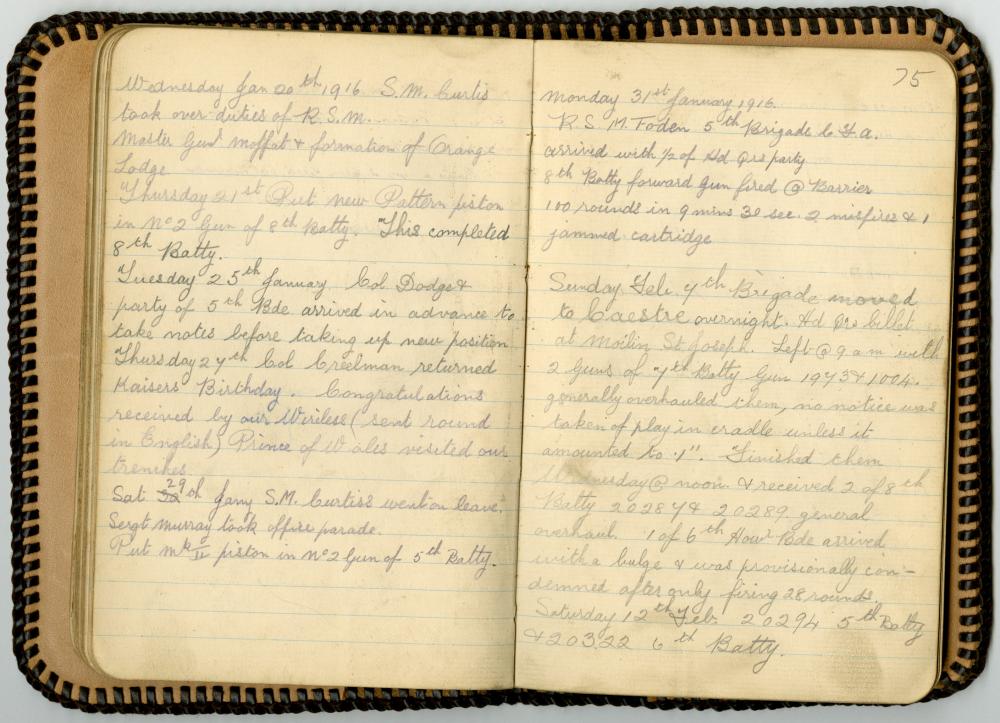 Wednesday Jan 20th 1916 S.M. Curtis
took over duties of R.S.M.
Master Gunr Moffat & formation of Orange
Lodge
Thursday 21st Put new Pattern piston
in No 2 Gun of 8th Batty. "This completed
8th Batty.
Tuesday 25th January Col Dodge &
party of 5th Bde arrived in advance to
take notes before taking up new position
Thursday 27th Col Creelman returned
Kaisers Birthday. Congratulations
received by our Wireless (sent round
in English) Prince of Wales visited our
trenches
Sat 29th Jany S.M. Curtiss went on leave.
Sergt Murray took office parade.
Put Mk II piston in No 2 Gun of 5th Batty.
75
Monday 31st January 1916.
R.S.M. Toden 5th Brigade C.F.A.
arrived with 1/2 of Hd Qrs party
8th Batty forward Gun fired @ Barrier
100 rounds in 9 mins 30 sec. 2 misfires & 1
jammed cartridge
Sunday Feb. 7th Brigade moved
to Caestre overnight. Hd Qrs billet
at Moilin St Joseph. Left @ 9 am with
2 Guns of 7th Batty Gun 1973 & 1004.
generally overhauled them, no notice was
taken of play in cradle unless it
amounted to .1". Finished them
Wednesday @ noon. & received 2 of 8th
Batty 20287 & 20289 general
overhaul. 1 of 6th Howr Bde arrived
with a bulge & was provisionally con-
demned after only firing 28 rounds.
Saturday 12th Feb. 20294 5th Batty
& 20322 6th Batty.